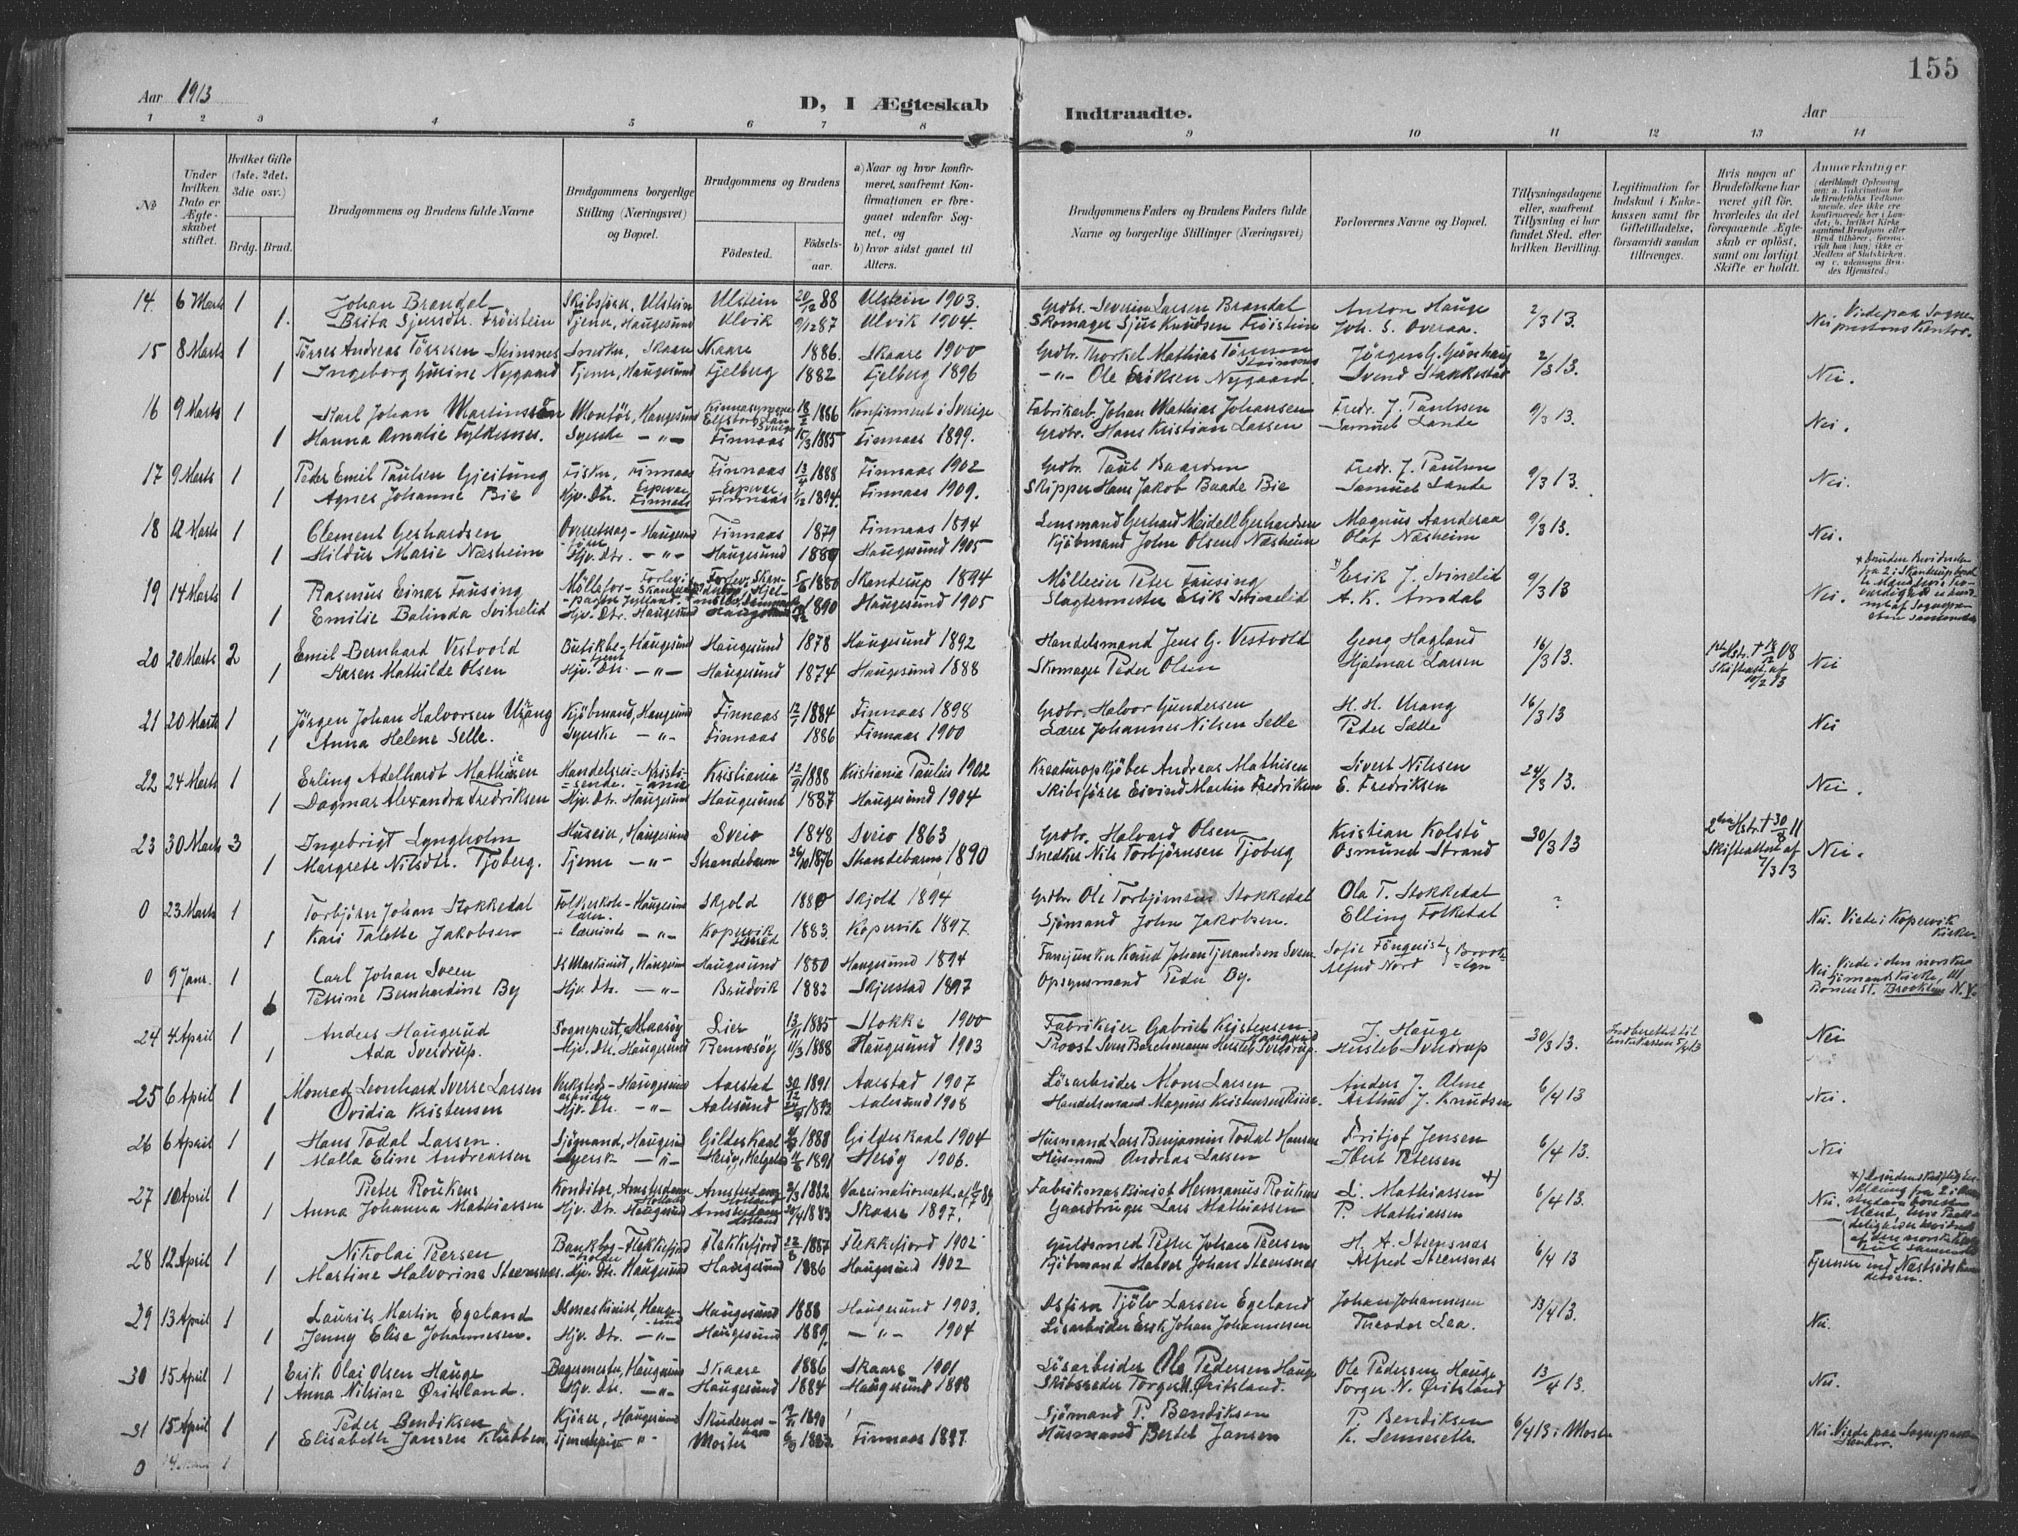 155
Aar 1913
D, I Ægteskab Indtraadte.
Aar
1 2 3 4 5 6 7 8 9 10 11 12 13 14
№
Under hvilken Dato er Ægteskabet stiftet.
Hvilket Gifte (1ste, 2det, 3die osv.)
Brdg. Brud.
Brudgommens og Brudens fulde Navne
Brudgommens borgerlige Stilling (Næringsvei) og Bopæl.
Brudgommens og Brudens
Födested. Födselsaar.
a) Naar og hvor konfirmeret, saafremt Konfirmationen er foregaaet udenfor Sognet, og
b) hvor sidst gaaet til Alters.
Brudgommens Faders og Brudens Faders fulde Navne og borgerlige Stillinger (Næringsvei)
Forlovernes Navne og Bopæl.
Tillysningsdagene eller, saafremt Tillysning ei har fundet Sted, efter hvilken Bevilling.
Legitimation for Indskud i Enkekassen samt for Giftetilladelse, forsaavidt saadan tiltrænges.
Hvis nogen af Brudefolkene har været gift för, hvorledes da det foregaaende Ægteskab er oplöst, samt om lovligt Skifte er holdt.
Anmærkninger
14 6 Marts 1 Johan Brandal Skibsförer, Ulstein Ulstein 20/12 88 Ulstein 1903. Grdbr. Severin Larsen Brandal Anton Hauge 2/3 13. Nei Viede paa Sogneprestens Kontor.
1. Brita Sjursdtr. Fröistein Tjener, Haugesund Ulvik 9/12 87 Ulvik 1904. Skomager Sjur Knudsen Fröistein Joh. S. Overaa.
15 8 Marts 1 Törres Andreas Törresen Steinsnes Snedker, Skaare Skaare 1886. Skaare 1900 Grdbr. Thorkel Mathias Törresen Steinsnes Jörgen G. 2/3 13. Nei.
1 Ingeborg Gurine Nygaard Tjener, Haugesund Fjelberg 1882 Fjelberg 1896 -"- Ole Eriksen Nygaard. Svend Stakkestad
16 9 Marts 1 Karl Johan Martinssön Montör, Haugesund 18/2 1886 Konfirmeret i Sverige Fabrikarb. Johan Mathias Johansen Fredr. J. Paulssen 9/3 13. Nei.
1 Hanna Amalie Fylkesnes. Syerske -"- Finnaas 15/3 1885 Finnaas 1899. Grdbr. Hans Kristian Larsen Samuel Lande
17 9 Marts 1 Peder Emil Paulsen Gjeitung Fisker, Finnaas Finnaas 13/4 1888 Finnaas 1902 Grdbr. Paul Baardsen Fredr. J. Paulsen 9/3 13. Nei.
1 Agnes Johanne Bie Hjv. Dtr. Espevær Finnaas Espevær Finnaas 1/12 1894. Finnaas 1909. Skipper Hans Jakob Baade Bie Samuel Lande
18 12 Marts 1 Clement Gerhardsen Overretssag-förer Haugesund Finnaas 1879 Finnaas 1894 Lensmand Gerhard Meidell Gerhardsen Magnus Aanderaa 9/3 13. Nei.
1 Hildur Marie Næsheim Hjv. Dtr. -"- Haugesund 1889 Haugesund 1905 Kjöbmand John Olsen Næsheim Olaf Næsheim
19 14 Marts 1 Rasmus Einar Fausing 5/6 1880 Skanderup 1894 Mölleeier Peter Fausing Erik J. Svinelid 9/3 13 Nei.
1 Emilie Balinda Svinelid Hjv. Dtr. Haugesund Haugesund 1890 Haugesund 1905 Slagtermester Erik Svinelid A. K. Amdal
20 20 Marts 2 Emil Bernhard Vestvold Butikbe-tjent Haugesund Haugesund 1878 Haugesund 1892 Handelsmand Jens G. Vestvold Georg Hagland 16/3 13. 1ste Hstr. † 18/12 08 Skifteatt. af 10/2 13 Nei
1 Karen Mathilde Olsen Hjv. Dtr. -"- Haugesund 1874 Haugesund 1888 Skomager Peder Olsen Hjalmar Larsen
21 20 Marts 1 Jörgen Johan Halvorsen Urang Kjöbmand, Haugesund Finnaas 12/7 1884 Finnaas 1898 Grdbr. Halvor Gundersen H. H. Urang 16/3 13 Nei
1 Anna Helene Selle. Syerske -"- Finnaas 1886 Finnaas 1900 Lærer Johannes Nilsen Selle Peder Selle
22 24 Marts 1 Erling Adelhardt Mathiesen Handelsrei-sende. Kristi-ania Kristiania 12/9 1888 Kristiania Paulus 1902 Kreaturopkjöber Andreas Mathisen Sivert Nilssen 24/3 13. Nei.
1 Dagmar Alexandra Fredriksen Hjv. Dtr. Haugesund Haugesund 1887 Haugesund 1904 Skibsförer Eivind Martin Fredriksen E. Fredriksen
23 30 Marts 3 Ingebrigt Lyngholm Huseier, Haugesund Sveio 1848 Sveio 1863 Grdbr. Halvard Olsen Kristian Kolstö 30/3 13 2den Hstr. † 30/8 11 Skifteattest af 7/3 13 Nei.
1 Margrete Nilsdtr. Tjoberg. Tjener -"- Strandebarm 26/10 1876 Strandebarm 1890 Snedker Nils Torbjörnsen Tjoberg Osmund Strand
0 23 Marts 1 Torbjörn Johan Stokkedal Folkeskole-lærer Haugesund Skjold 1880 Skjold 1894 Grdbr. Ole Torbjörnsen Stokkedal Ola T. Stokkedal ? Nei. Viede i Kopervik Kirke.
1 Kari Talette Jakobsen Lærerinde -"- Kopervik 1883. Kopervik 1897. Sjömand John Jakobsen. Elling Folkedal
0 9 Janr. 1 Carl Johan Sveen Haugesund 1880 Haugesund 1894 Fanejunker Knud Johan Tjerandsen Sveen Sofie Fönquist Brooklyn Nei Viede i den norske Sjömandskirke, 111 Pioneer St. Brooklyn N.Y.
1 Petrine Bernhardine By Hjv. Dtr. -"- Bruvik 1882 Skjerstad 1897 Opsynsmand Peder By. Alfred Nord
24 4 April 1 Anders Haugerud Sogneprest, Maasöy Lier 13/11 1885 Stokke 1900 Fabrikeier Gabriel Kristensen Haugerud J. Hauge 30/3 13. Indberettet til Enkekassen 5/4 13 Nei
1 Ada Sverdrup. Hjv. Dtr. Haugesund Rennesöy 11/3 1888 Haugesund 1903 Provst Sven Borchmann Hersleb Sverdrup. Hersleb Sverdrup
25 6 April 1 Monrad Leonhard Sverre Larsen Verksteds-arbeider Haugesund Aarstad 30/12 1891 Aarstad 1907 Lösarbeider Mons Larsen Anders J. Alme 6/4 13 Nei.
1 Ovidia Kristensen Hjv. Dtr. -"- Aalesund 1893 Aalesund 1908 Handelsmand Magnus Kristensen Arthur J. Knudsen
26 6 April 1 Hans Todal Larsen. Sjömand, Haugesund Gildeskaal 1888 Gildeskaal 1904 Husmand Lars Benjamin Todal Hansen Fritjof Jensen 6/4 13. Nei
1 Malla Eline Andreassen Syersk -"- Heröy, Helgeland 1891 Heröy 1906. Husmand Andreas Larsen Ibert Petersen
27 10 April 1 Pieter Roukens Konditor, Amsterdam Holland Amsterdam Holland 2/3 1882 Vaccinationsatt. af 11/7 89 Fabrikmaskinist Hermanus Roukens L. Mathiassen *) 6/4 13. Nei.
1 Anna Johanna Mathiassen Hjv. Dtr. Haugesund Amsterdam Holland 1883 Skaare 1897. Gaardbruger Lars Mathiassen P. Mathiassen
28 12 April 1 Nikolai Peersen Bankbog-holder Flekkefjord Flekkefjord 22/8 1887 Flekkefjord 1902 Guldsmed Peter Johan Peersen H. A. Steensnæs 6/4 13
1 Martine Halvorine Steensnæs. Hjv. Dtr. Haugesund Haugesund 1886 Haugesund 1902 Kjöbmand Halvor Johan Steensnæs Alfred Steensnæs
29 13 April 1 Laurits Martin Egeland Dsmaskinist, Haugesund Haugesund 1888 Haugesund 1903. Tjölv Larsen Egeland Johan Johannesen 13/4 13. Nei.
1 Jenny Elise Johannesen. Hjv. Dtr. -"- Haugesund 1889. -"- 1904 Lösarbeider Erik Johan Johannesen Theodor Lea.
30 15 April 1 Erik Olai Olsen Hauge Bagermester, Haugesund Skaare 1886 Skaare 1901 Lösarbeider Ole Pedersen Hauge Ole Pedersen Hauge 13/4 13. Nei.
1 Anna Nilsine Öritsland. Hjv. Dtr. -"- Haugesund 1884 Haugesund 1898 Skibsreder Torger N. Öritsland. Torger N. Öritsland
31 15 April 1 Peder Bendiksen Kjörer, Haugesund Skudenes-havn 1890 Sjömand P. Bendiksen P. Bendiksen 6/4 13 i Moster Nei Viede paa Sogneprestens Kontor.
1 Elisabeth Jansen Klubben Tjenestepige " Moster Finnaas 1897 Husmand Bertel Jansen K. Senneseth
0 1